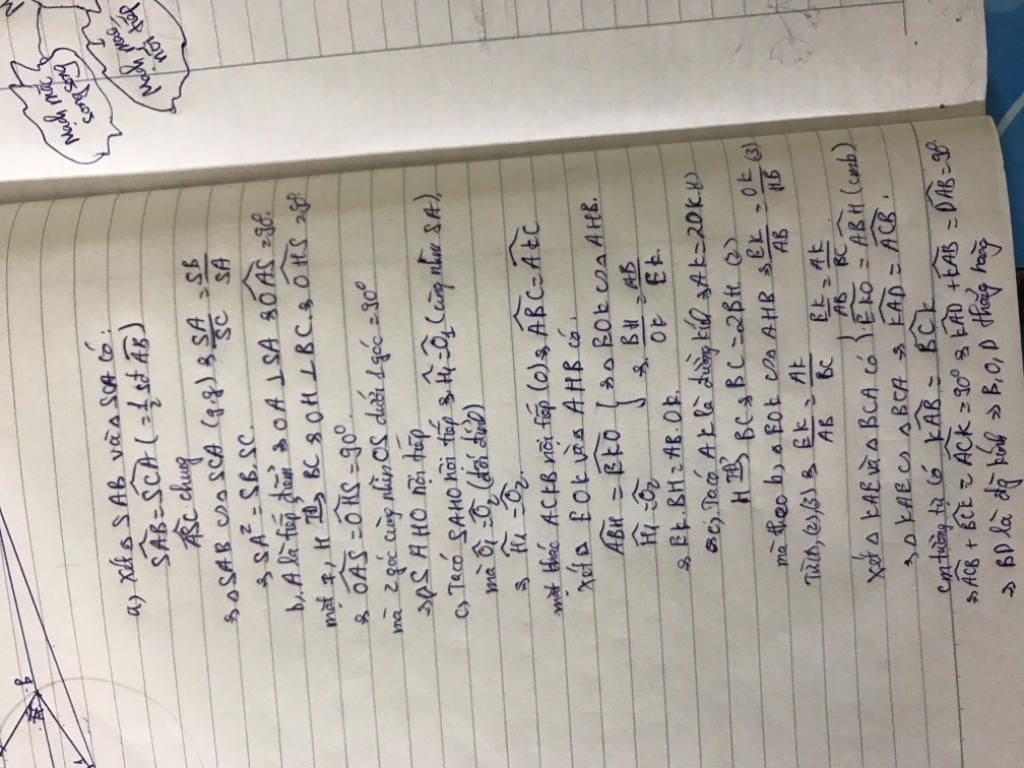 Mạch mã
song song
B
a) Xét Δ SAB và Δ SCA có:
SAB = SCA (= 1/2 sđ AB)
ASC chung
⇒ Δ SAB ∽ SCA (g.g) ⇒ SA/SC = SB/SA
⇒ SA² = SB.SC.
b, A là tiếp điểm ⇒ OA ⊥ SA ⇒ OAS = 90°.
mặt ≠, H TĐ BC ⇒ OH ⊥ BC ⇒ OHS = 90°
⇒ OAS = OHS = 90°
mà 2 góc cùng nhìn OS dưới 1 góc = 90°
⇒ SAHO nội tiếp
c, Ta có SAHO nội tiếp ⇒ H1 = O1 (cùng nhìn SA),
mà O1 = O2 (đối đỉnh)
⇒ H1 = O2
mặt khác ACKB nội tiếp (O) ⇒ ABC = AKC
Xét Δ EOK và Δ AHB có:
ABH = EKO } ⇒ Δ EOK ∽ Δ AHB.
H1 = O2 ⇒ BH/OK = AB/EK
⇒ EK.BH = AB.OK.
Ta có AK là đường kính ⇒ AK = 2OK (1)
H TĐ BC ⇒ BC = 2BH (2)
mà theo b, Δ EOK ∽ Δ AHB ⇒ EK/AB = OK/HB (3)
Từ (1), (2), (3) ⇒ EK/AB = AK/BC
Xét Δ KAE và Δ BCA có } EK/AB = AK/BC
EKO = ABH (cmb)
⇒ Δ KAE ∽ Δ BCA ⇒ KAD = ACB.
cm tương tự có KAB = BCK
⇒ ACB + BCK = ACK = 90° ⇒ KAD + KAB = DAB = 90°
⇒ BD là đg kính ⇒ B, O, D thẳng hàng